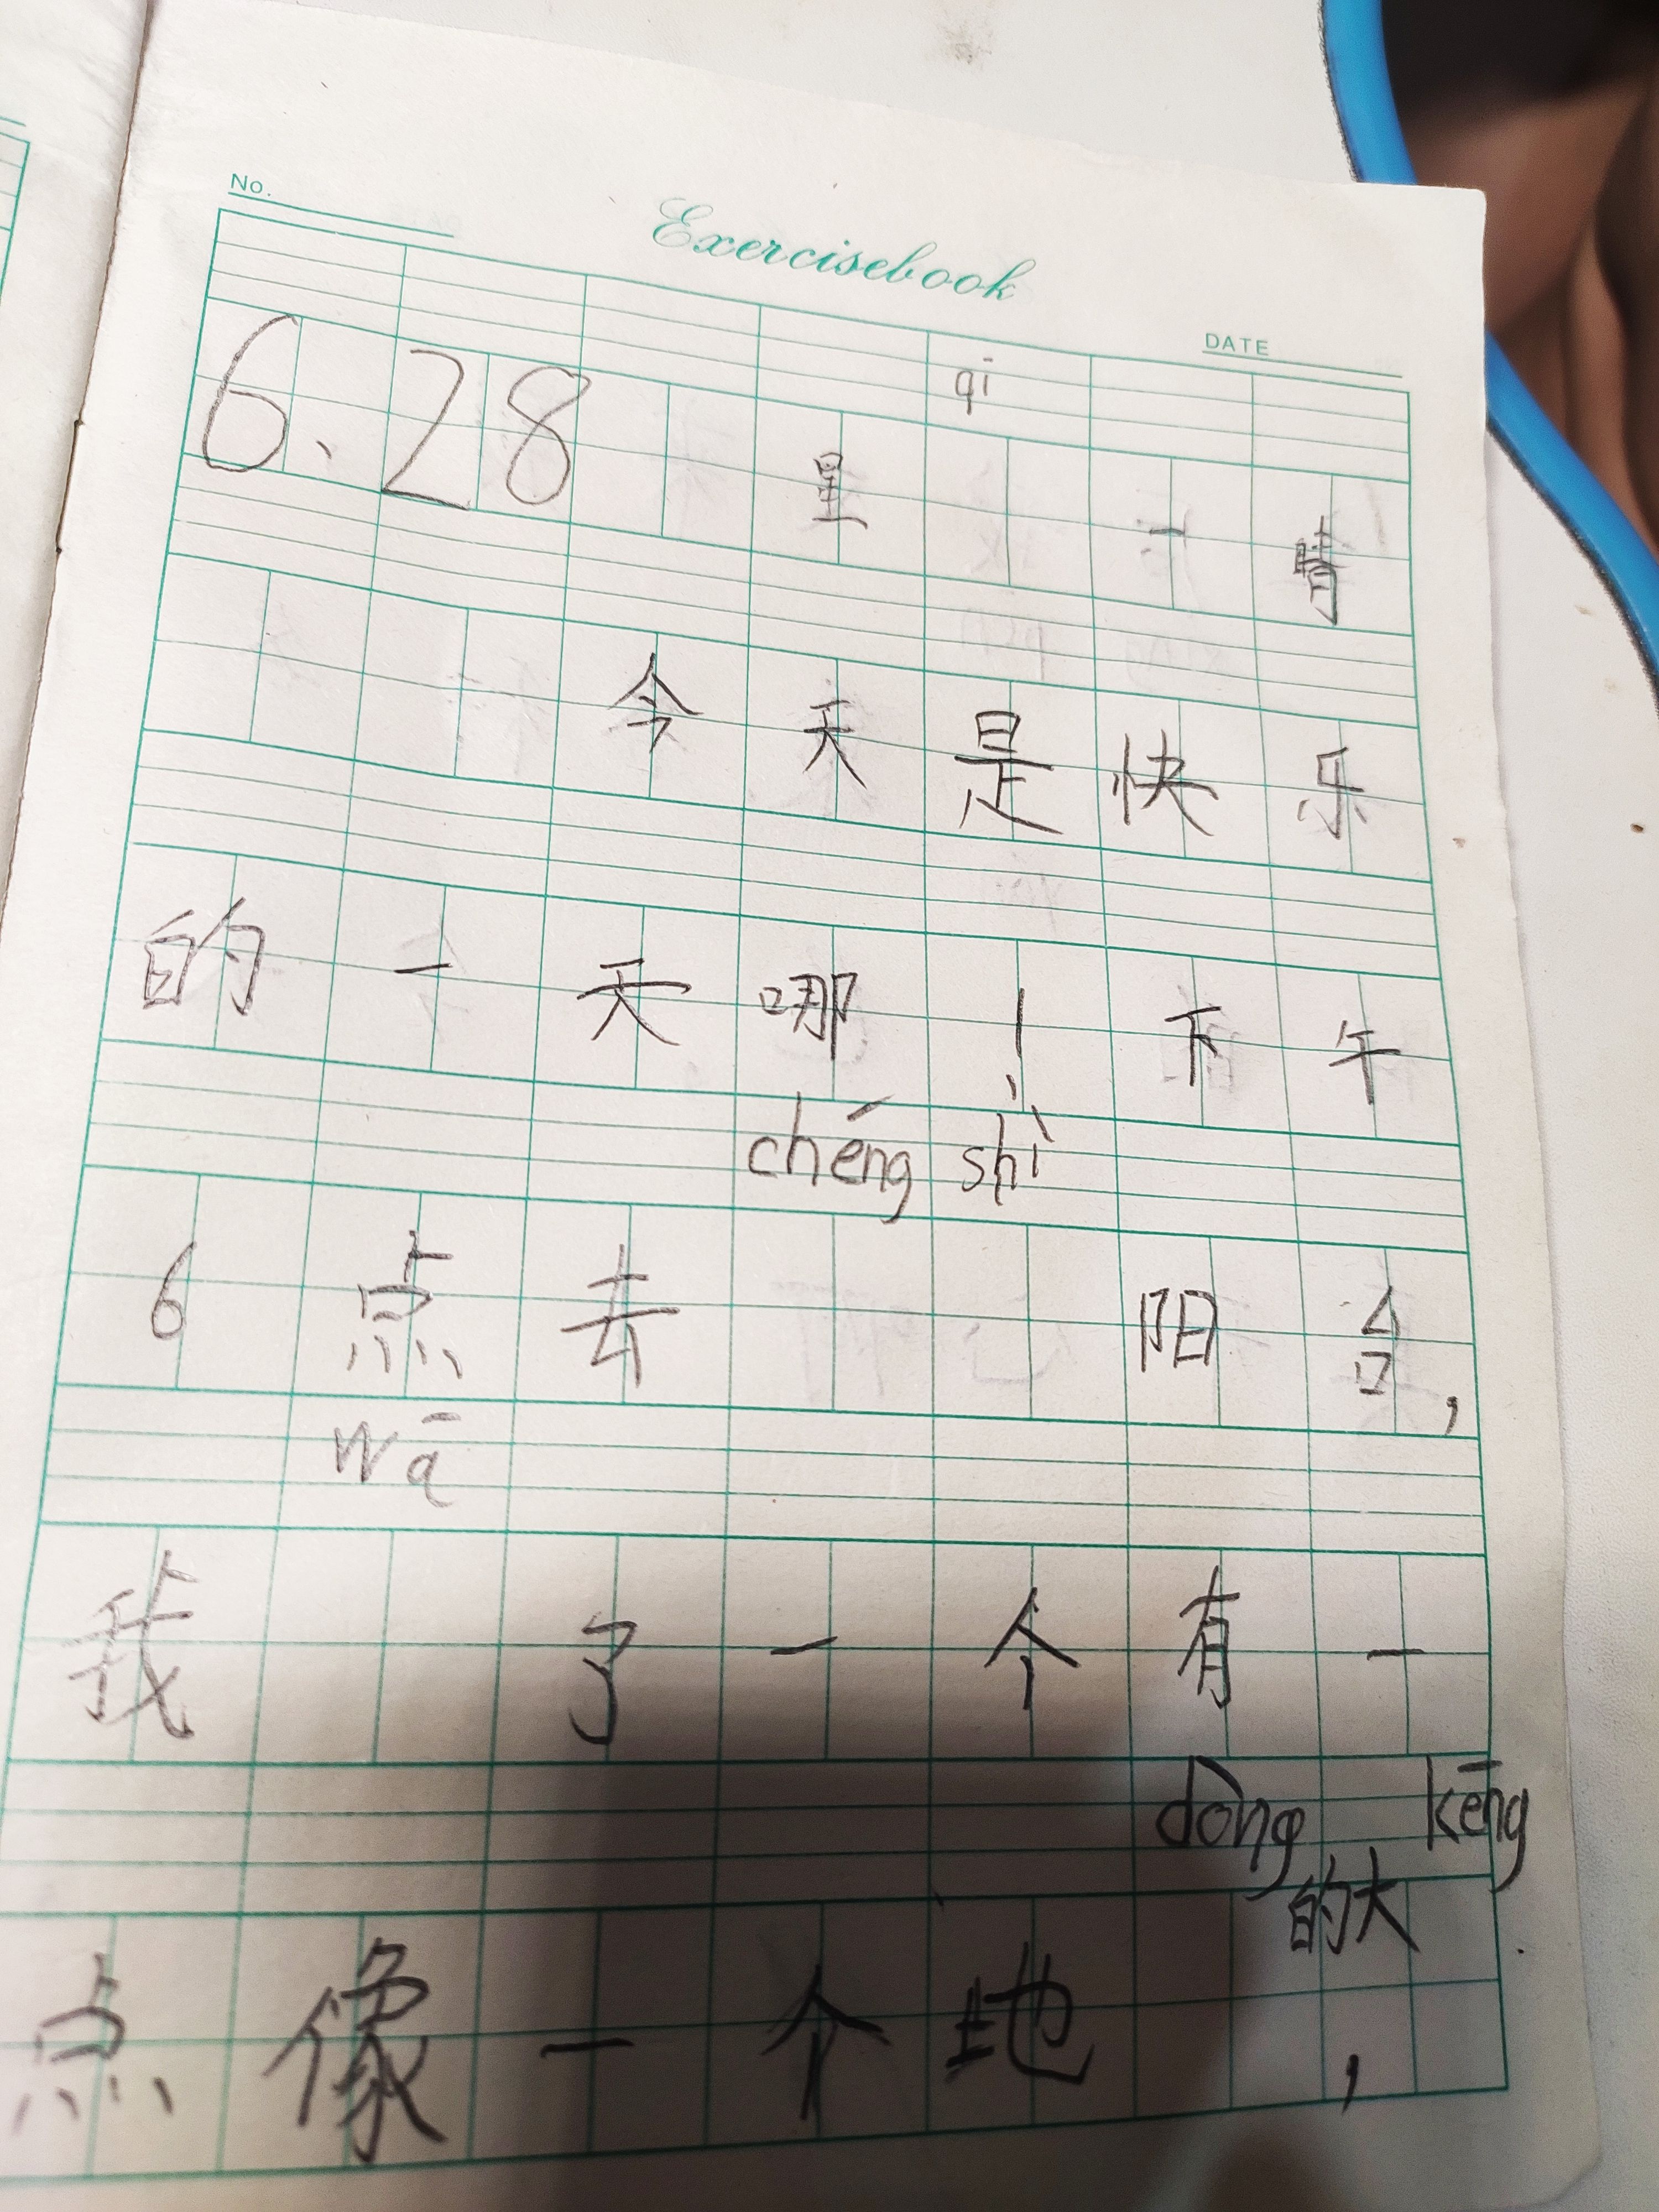 No.
Exercisebook
DATE
qī
6.28 星 一 晴
今天是快乐
的一天哪！下午
chéng shì
6点去 阳台，
wā
我 了一个有一
dòng kēng
的大
点像一个地 ，